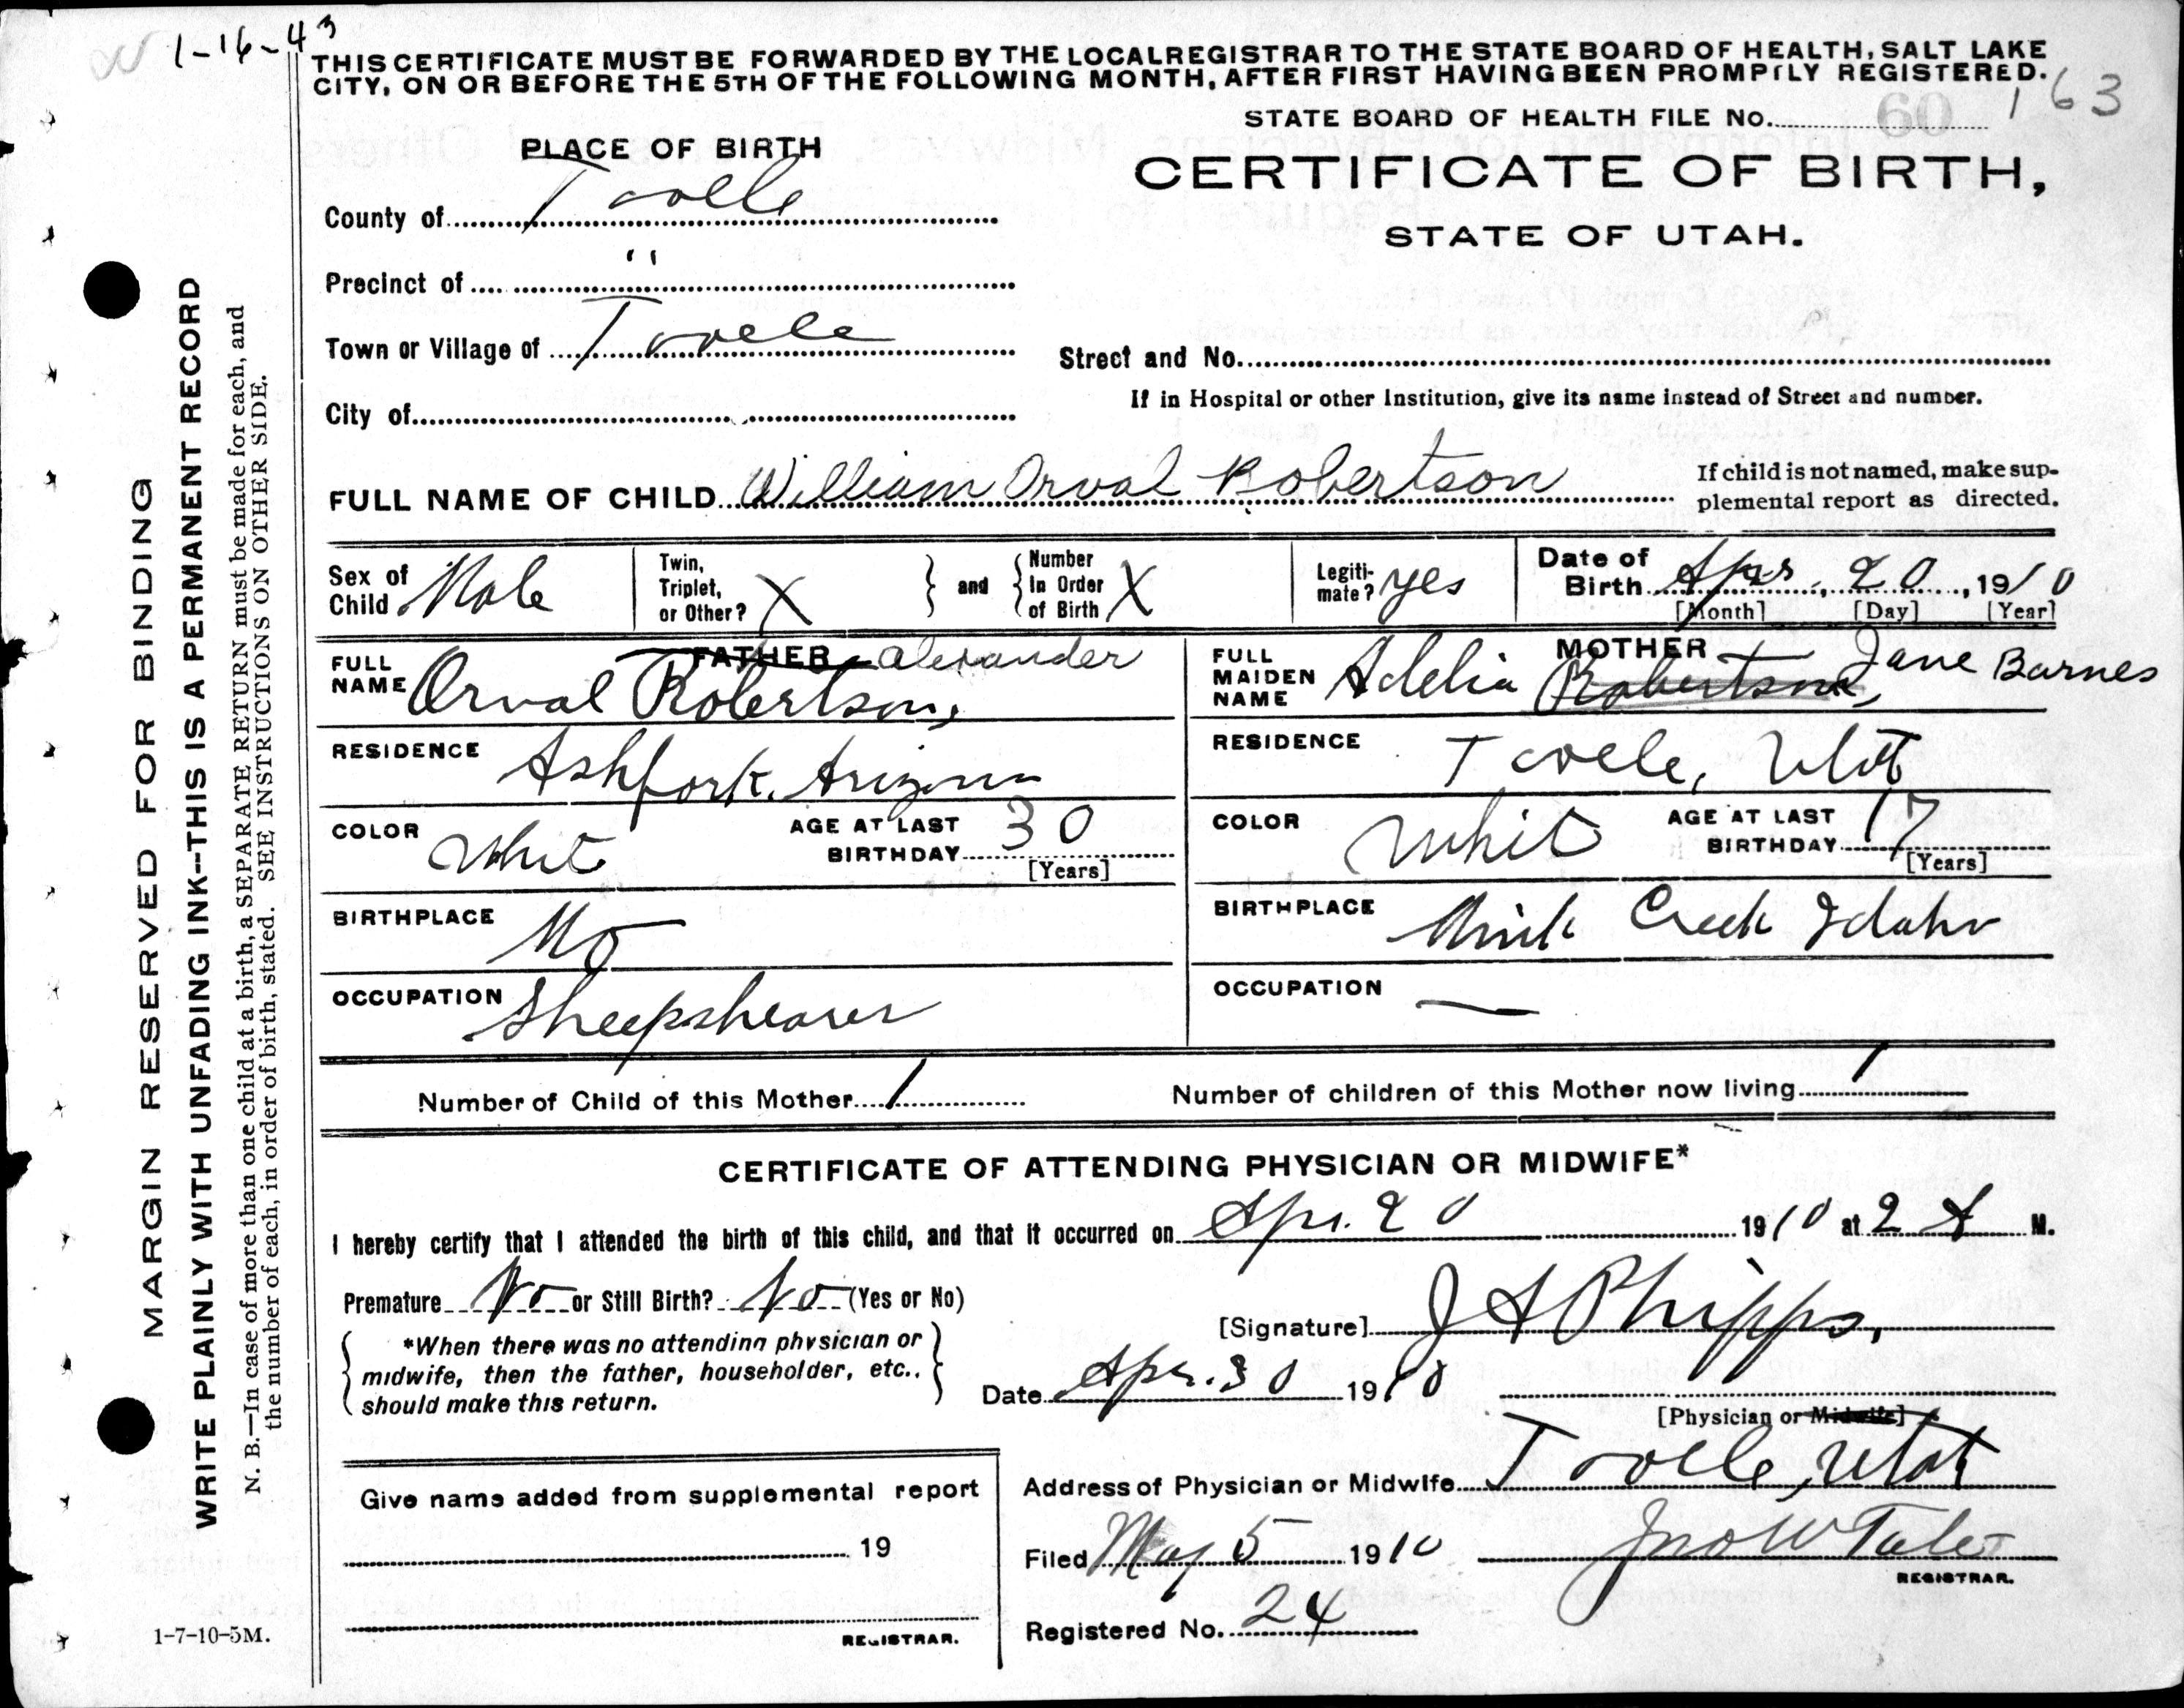 1-16-43
THIS CERTIFICATE MUST BE FORWARDED BY THE LOCAL REGISTRAR TO THE STATE BOARD OF HEALTH, SALT LAKE
CITY, ON OR BEFORE THE 5TH OF THE FOLLOWING MONTH, AFTER FIRST HAVING BEEN PROMPTLY REGISTERED.
163
STATE BOARD OF HEALTH FILE No. 60
PLACE OF BIRTH
CERTIFICATE OF BIRTH,
STATE OF UTAH.
County of Tooele
Precinct of "
Town or Village of Tooele
Street and No.
If in Hospital or other Institution, give its name instead of Street and number.
City of
FULL NAME OF CHILD William Orval Robertson
If child is not named, make sup-
plemental report as directed.
Sex of Child Male
Twin, Triplet, or Other? X
and
Number In Order of Birth X
Legiti-mate? yes
Date of Birth Apr. 20, 1910
[Month] [Day] [Year]
FATHER
FULL NAME Orval Alexander Robertson,
RESIDENCE Ashfork, Arizona
COLOR Whit
AGE AT LAST BIRTHDAY 30
[Years]
BIRTHPLACE Mo
OCCUPATION Sheepshearer
MOTHER
FULL MAIDEN NAME Adelia Robertson, Jane Barnes
RESIDENCE Tooele, Utah
COLOR Whit
AGE AT LAST BIRTHDAY 17
[Years]
BIRTHPLACE Mink Creek Idaho
OCCUPATION —
Number of Child of this Mother 1
Number of children of this Mother now living 1
CERTIFICATE OF ATTENDING PHYSICIAN OR MIDWIFE*
I hereby certify that I attended the birth of this child, and that it occurred on Apr. 20 1910 at 2 A M.
Premature No or Still Birth? No (Yes or No)
*When there was no attending physician or
midwife, then the father, householder, etc.,
should make this return.
[Signature] J A Phipps,
Date Apr. 30 1910
[Physician or Midwife]
Address of Physician or Midwife Tooele, Utah
Give name added from supplemental report
19
REGISTRAR.
Filed May 5 1910
Jno W Tate
REGISTRAR.
Registered No. 24
MARGIN RESERVED FOR BINDING
WRITE PLAINLY WITH UNFADING INK--THIS IS A PERMANENT RECORD
N. B.—In case of more than one child at a birth, a SEPARATE RETURN must be made for each, and
the number of each, in order of birth, stated. SEE INSTRUCTIONS ON OTHER SIDE.
1-7-10-5M.